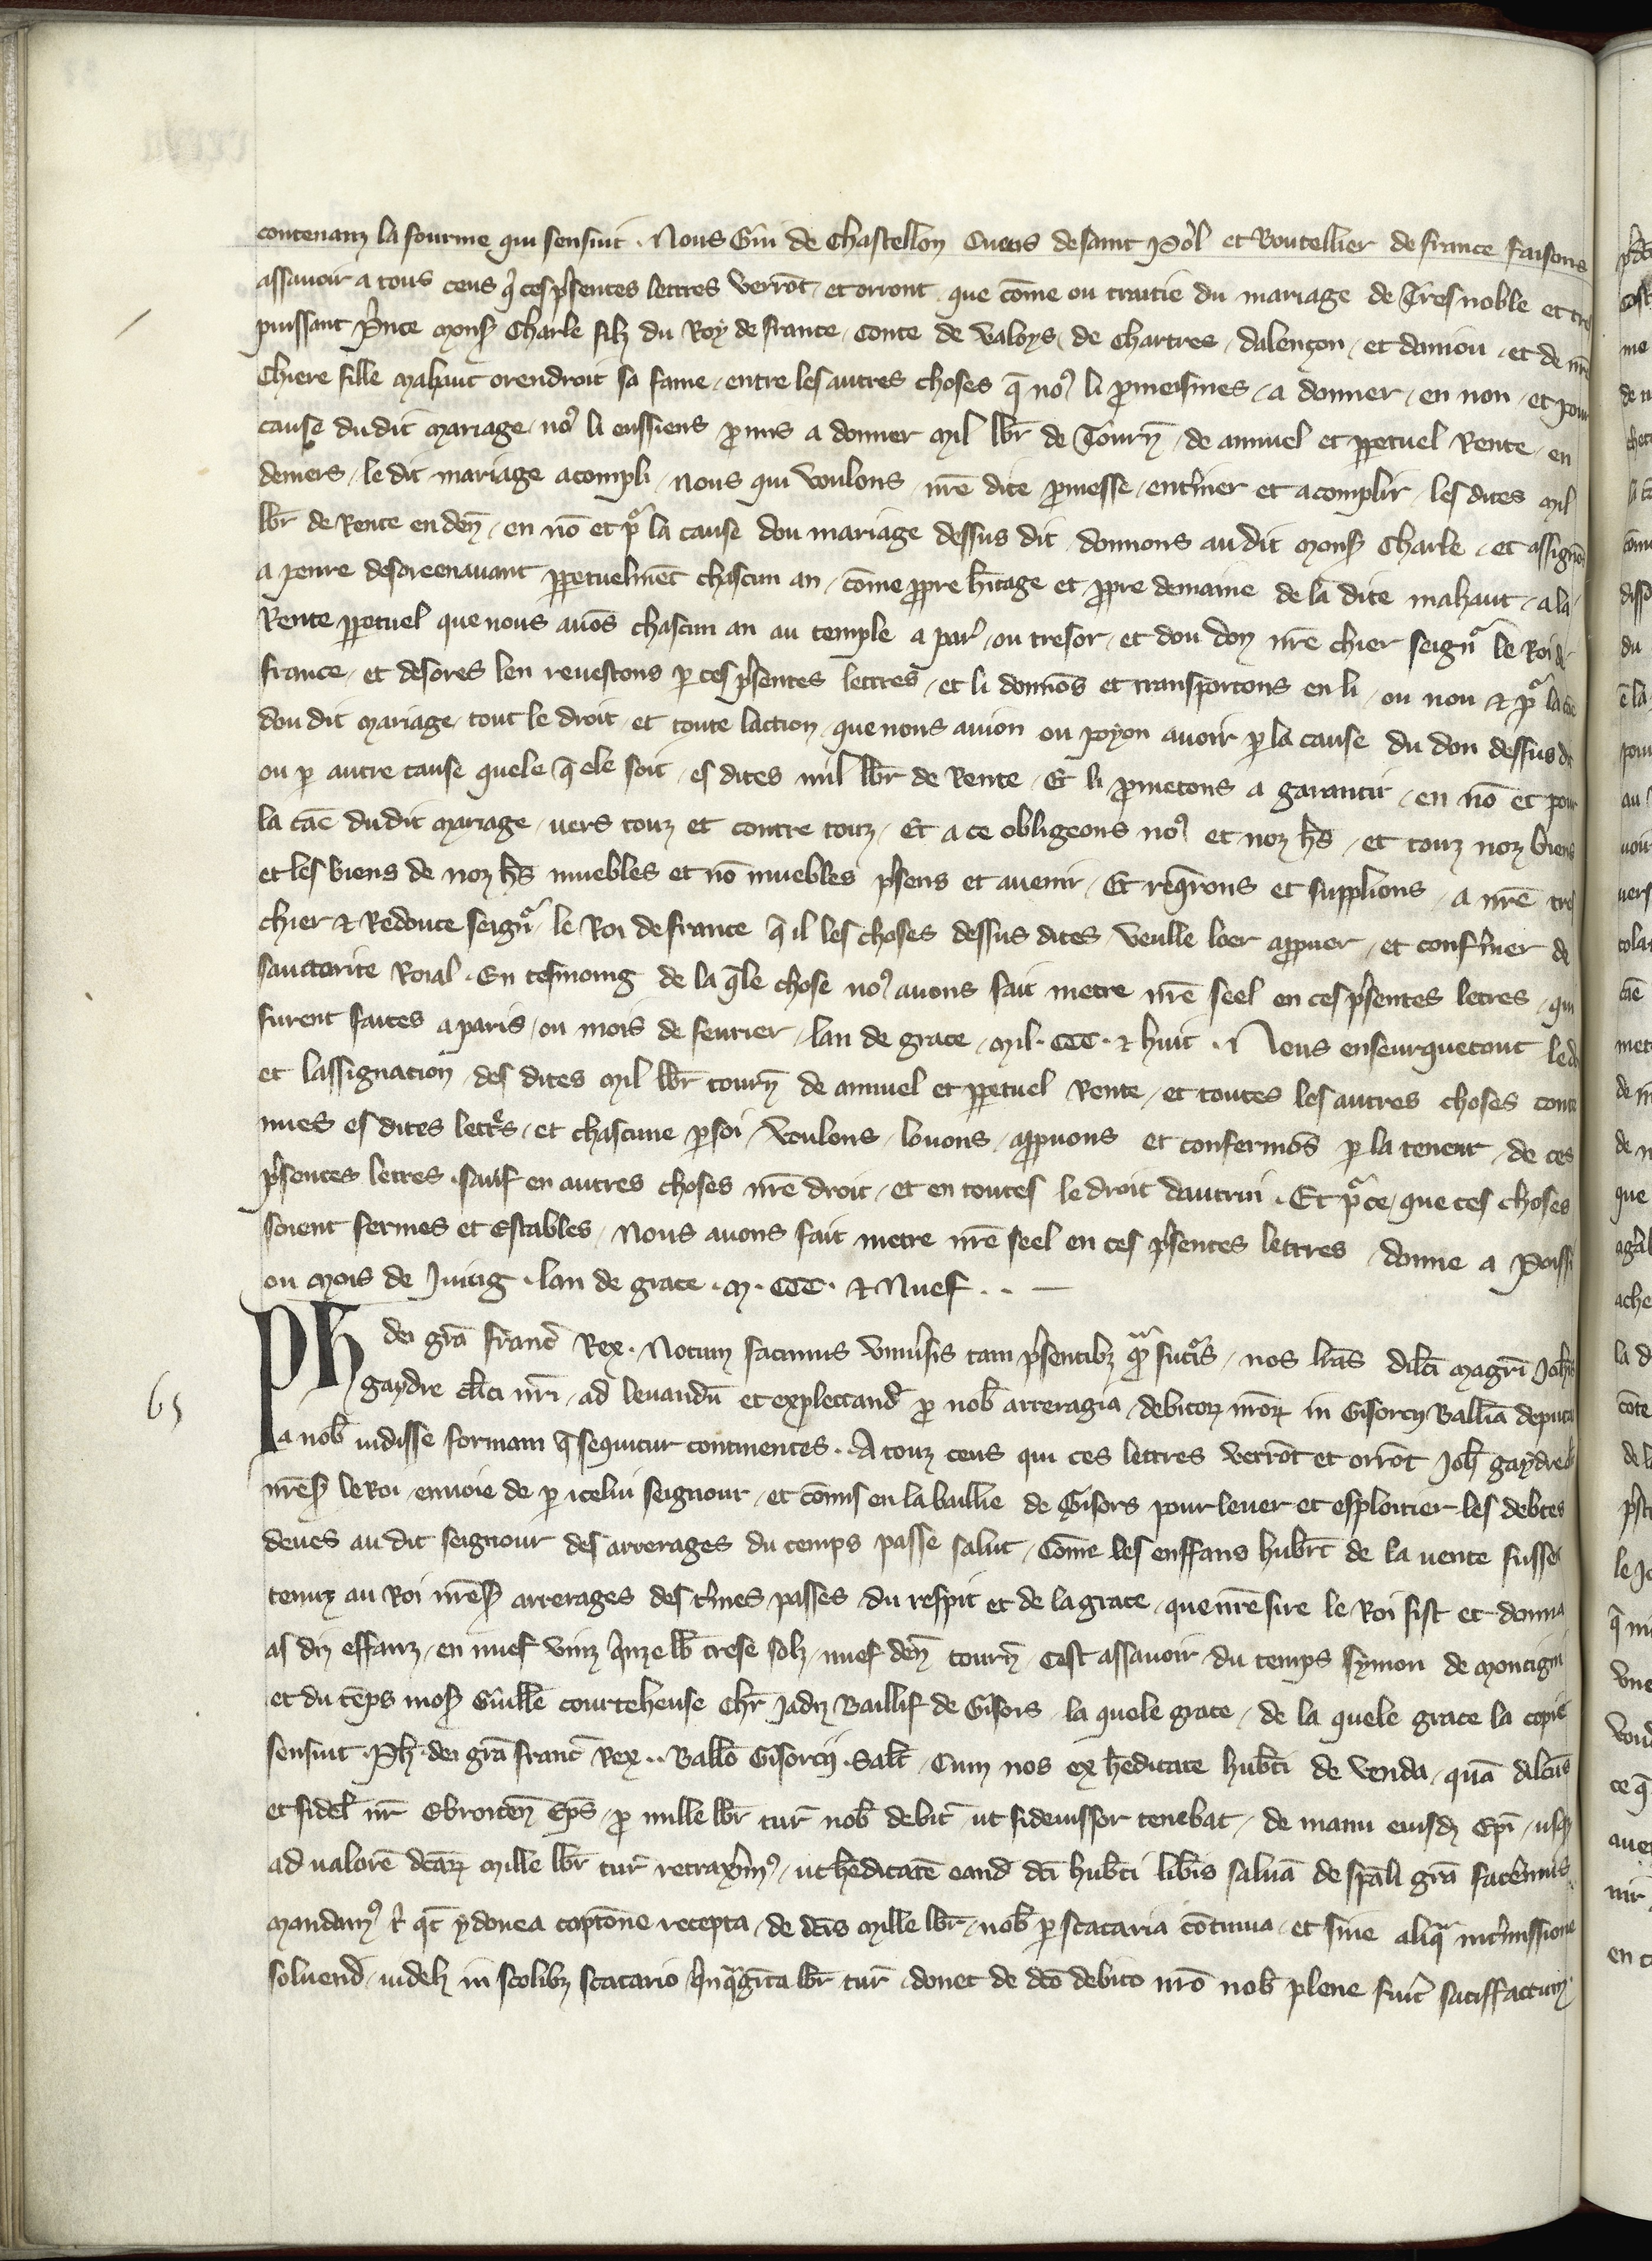 contenanz la fourme qui sensuit . Nous Gui de Chastellon Cuens de saint Pol et Boutellier de france faisons
assavoir a tous ceus q̍ ces p̍sentes lettres verrōt et orront que cōme ou traitie du mariage de Tres noble et tres
puissant P̍nce Mons̍ Charle filz du Roy de france , Conte de Valoys , de Chartres , dalençon , et daniou , et de nr̄e
Chiere fille Mahaut orendroit sa fame , entre les autres choses q̄ noꝰ li ꝓmeismes , a donner , en non , et pour
cause dudit mariage , noꝰ li eussiens ꝓmis a donner Mil lb̄r de Tourn̄ , de annuel et ꝑpetuel Rente , en
deniers , le dit mariage acompli , Nous qui voulons nr̄e dite ꝓmesse , ent̍iner et acomplir , les dites Mil
lb̄r de Rente en den̄ , en nō et pͦ la cause dou mariage dessus dit donnons au dit Mons̍ Charle , et assignōs
a penre desoreenavant ꝑpetuelmēt chascun an , cōme ꝓpre h̄itage et ꝓpre demaine de la dite Mahaut , a la
Rente ꝑpetuel que nous avōs chascun an au temple a par̍ , ou tresor , et dou don nr̄e chier seign̍ le Roi de
france , et desores len revestons ꝑ ces p̍sentes lettres , et li donnōs et transportons en li , ou non & pͦ la cāe
dou dit Mariage , tout le droit , et toute laction , que nous avion ou poyon avoir ꝑ la cause du don dessus dit
ou ꝑ autre cause quele q̄ ele soit , es dites mil lb̄r de Rente , Et li ꝓmetons a garantir , en nō et pour
la cāe dudit mariage , vers touz et contre touz , Et a ce obligeons noꝰ et noz h̄s , et touz noz biens
et les biens de noz h̄s muebles et nō muebles p̍sens et avenir , Et req̄rons et supplions , a nr̄e tres
chier & Redoute seign̍ le Roi de france q̄ il les choses dessus dites , veulle loer aꝓuer , et conf̍mer de
sauctorite Roial . En tesmoing de la q̄le chose noꝰ avons fait metre nr̄e seel en ces p̍sentes letres , qui
furent faites a paris , ou mois de fevrier , lan de grace , Mil . CCC . & huit . Nous enseurquetout le d
et lassignation des dites Mil lb̄r tourn̄ de annuel et ꝑpetuel Rente , et toutes les autres choses conte
nues es dites lett̍s , et chascune ꝑ soi , voulons , louons , aꝓuons et confermōs ꝑ la teneur , de ces
p̍sentes letres . sauf en autres choses nr̄e droit , et en toutes le droit dautrui . Et pͦ ce , que ces choses
soient fermes et Estables , Nous avons fait metre nr̄e seel en ces p̍sentes lettres , donne a Poissi
ou Mois de Juing . lan de grace . M . CCC . & Nuef . . —
Ph̄ dei grā franc̄ Rex . Notum facimus Univ̍sis tam p̍sentibꝫ qͣꝫ fut̍is , nos lr̄as dilc̄i magr̄i Joh̄is
65
gaydre cl̄ici nr̄i , ad levandū et explectand̄ ꝓ nob̄ arreragia , debitoꝝ nr̄oꝝ in Gisorcij Ball̄ia deputa
a nob̄ vidisse formam q̄ sequitur continentes . A touz ceus qui ces lettres verrōt et orrōt Joh̄ gaydre cl̄
nr̄es̍ le Roi , envoie de ꝑ icelui seignour , et cōmis en la baillie de Gisors pour lever et esploitier les debtes
deues au dit seignour des arrerages du temps passe salut , Cōme les enffans hub̄t de la vente fussēt
tenuz au Roi nr̄es̍ arrerages des t̍mes passes du respit et de la grace , que nr̄e sire le Roi fist et donna
as diz effanz , en nuef vinz q̍nze lb̄ trese solz , nuef den̄ tourn̄ , cest assavoir du temps Symon de Montigni
et du tēps mos̍ Guill̄e courteheuse Ch̄r Jadiz Baillif de Gisors la quele grace , de la quele grace la copie
sensuit . Ph̄ . dei grā franc̄ Rex . . Ball̄o Gisorcij . Sal̄t , Cum nos ex h̄editate hub̄ti de Venda , quā dilc̄us
et fidel̄ nr̄ Ebroicen̄ Ep̄s , ꝓ mille lb̄r tur̄ nob̄ debit̄ ut fideiussor tenebat , de manu eiusdꝫ Ep̄i , usqꝫ
ad valorē dc̄aꝝ Mille lb̄r tur̄ retraxim̍ꝰ , ut h̄editatē eand̄ dc̄i hub̄ti lib̄is salvā de sp̄ali grā facem̍us
mandamꝰ t̍ qt̄ ydonea captōne recepta , de dc̄is mille lb̄r , nob̄ ꝑ scacaria cōtinua , et sine aliqͣ int̍missione
solvend̄ , videlꝫ in scolibꝫ scacario q̍nqͣgīta lb̄r tur̄ , donec de dc̄o debito nr̄o nob̄ plene fuit̄ satisfactum